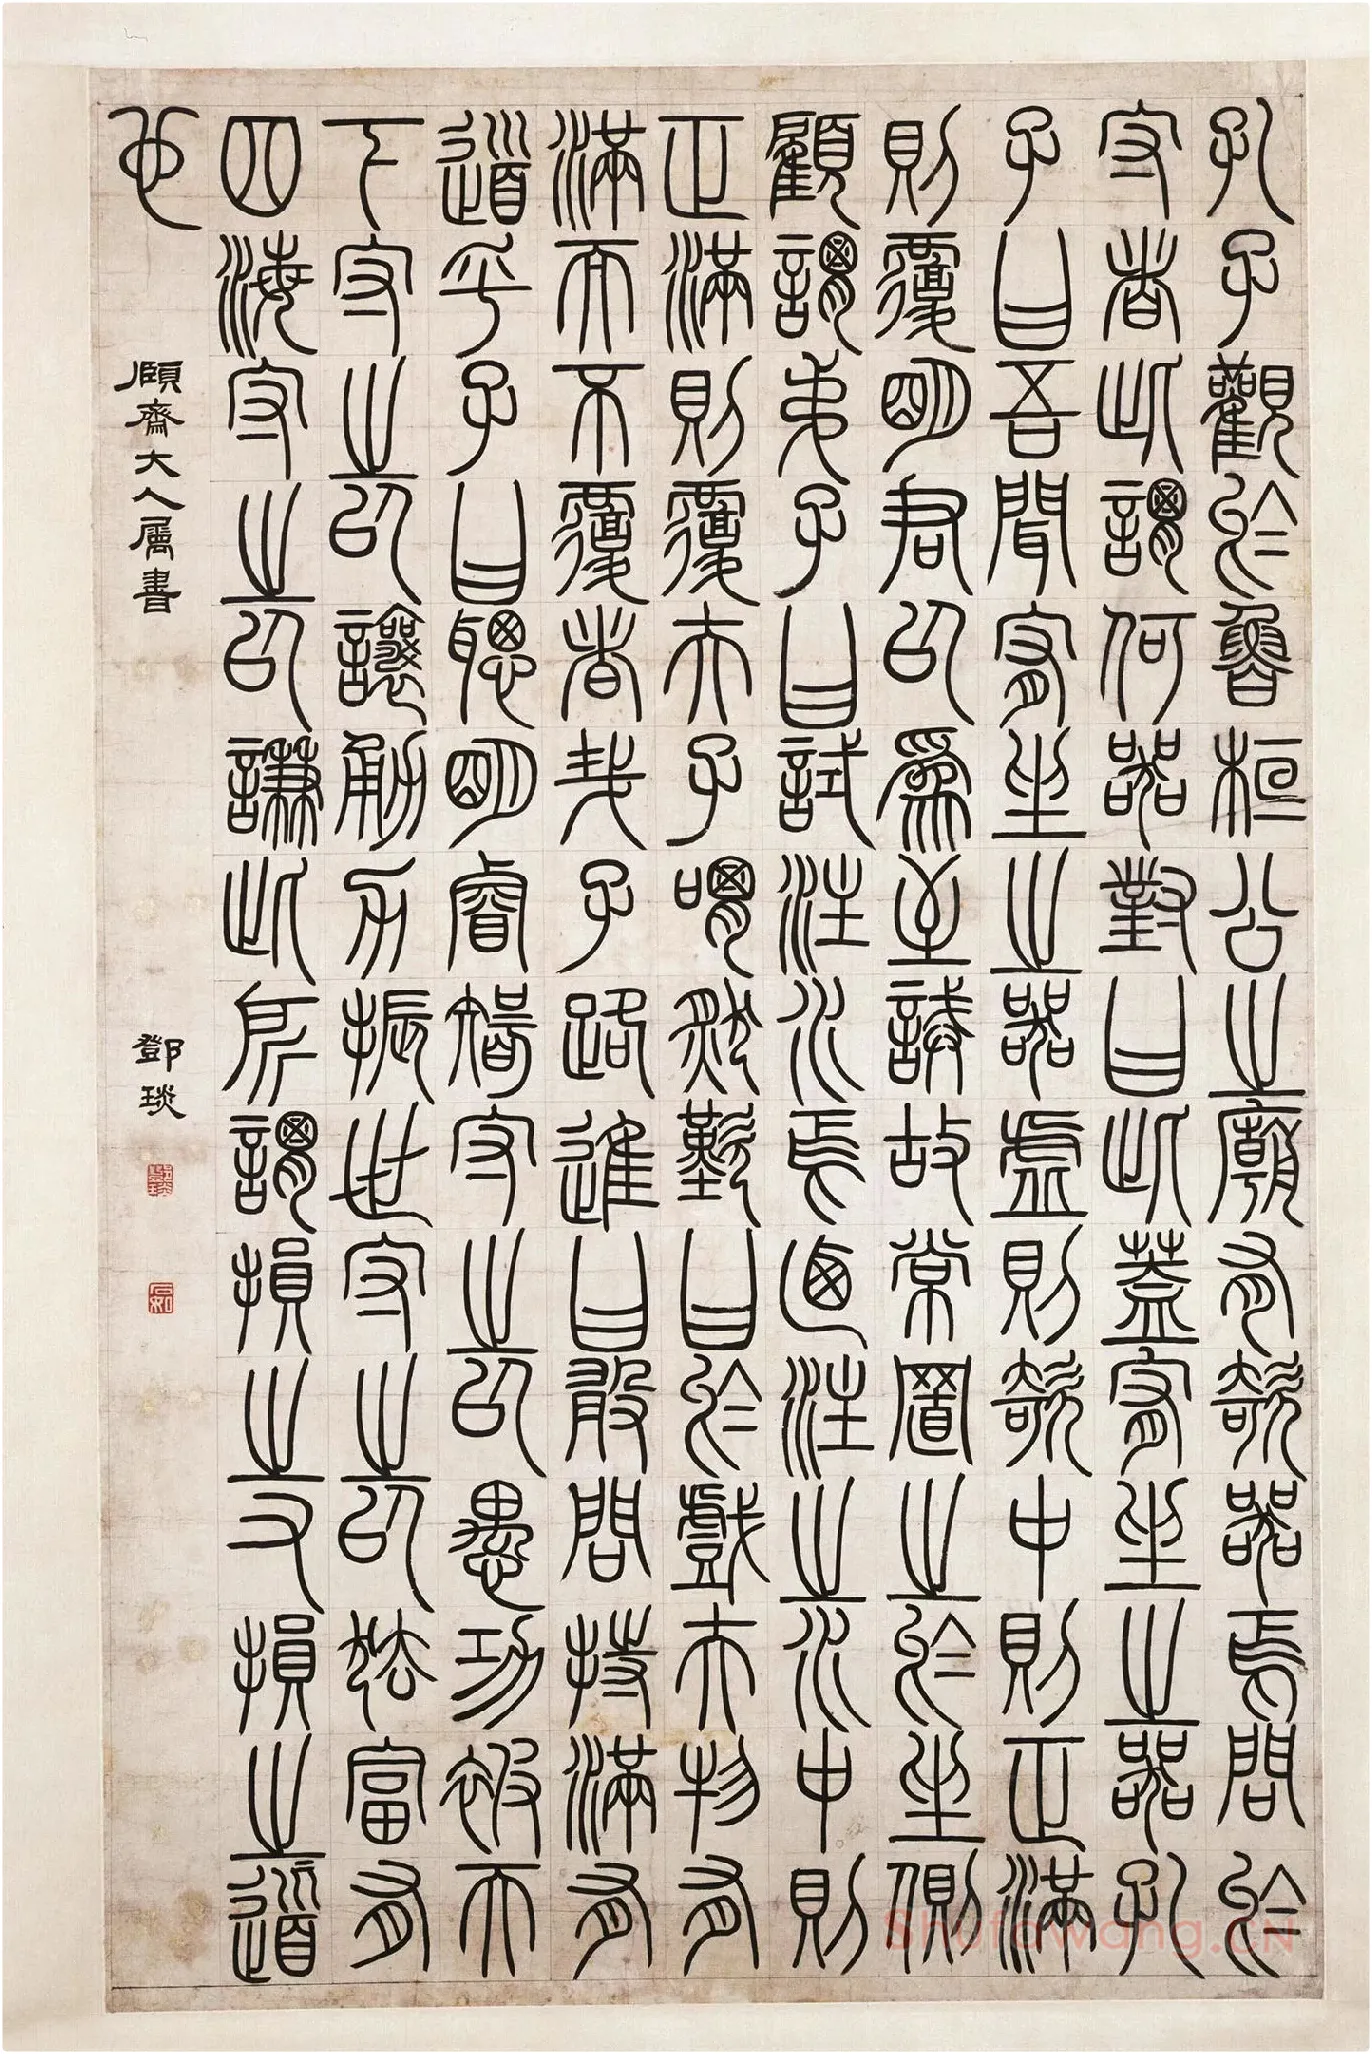 孔子觀於魯桓公之廟有欹器焉問於
守者此謂何器對曰此蓋宥坐之器孔
子曰吾聞宥坐之器虛則欹中則正滿
則覆明君以爲至誡故常置之於坐側
顧謂弟子曰試注水焉迺注之水中則
正滿則覆夫子喟然歎曰於戲夫物有
滿而不覆者哉子路進曰敢問持滿有
道乎子曰聰明睿智守之以愚功被天
下守之以讓勇力振世守之以怯富有
四海守之以謙此所謂損之又損之道
也
頤齋大人屬書
鄧琰
鄧琰
石如
Shufawang.CN